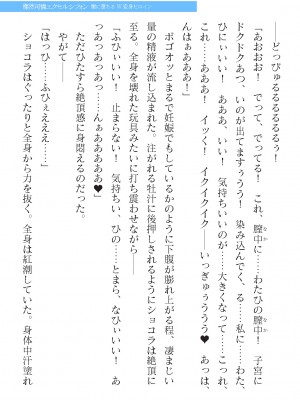 ――どっぴゅるるるるるるっ！
「あおおお！　でって、でってる！　これ、膣中に……わたひの膣中！　子宮に
ドクドクあつ、いのが出てますぅうう！　染み込んでく、る……私に……わた、
ひにぃいい！　あああ、いい！　気持ちいいのが……大きくなって……こっれ、
これ……あああ！　イッく！　イクイクイク――いっぎゅぅうううう♥　あっは、
んはぁああああ！」
　ボゴオッとまるで妊娠でもしているかのように下腹が膨れ上がる程、凄まじい
量の精液が流し込まれた。注がれる牡汁に後押しされるようにショコラは絶頂に
至る。全身を壊れた玩具みたいに打ち震わせながら――
「ふひぃいい！　止まらない！　気持ちいい、ひの……とまら、なひぃいい！　あ
っあっあっあっ……んぁああああああ♥」
　ただひたすら絶頂感に身悶えるのだった。
　やがて
「はっひ……ふひぇえええ……」
　ショコラはぐったりと全身から力を抜く。全身は紅潮していた。身体中汗塗れ